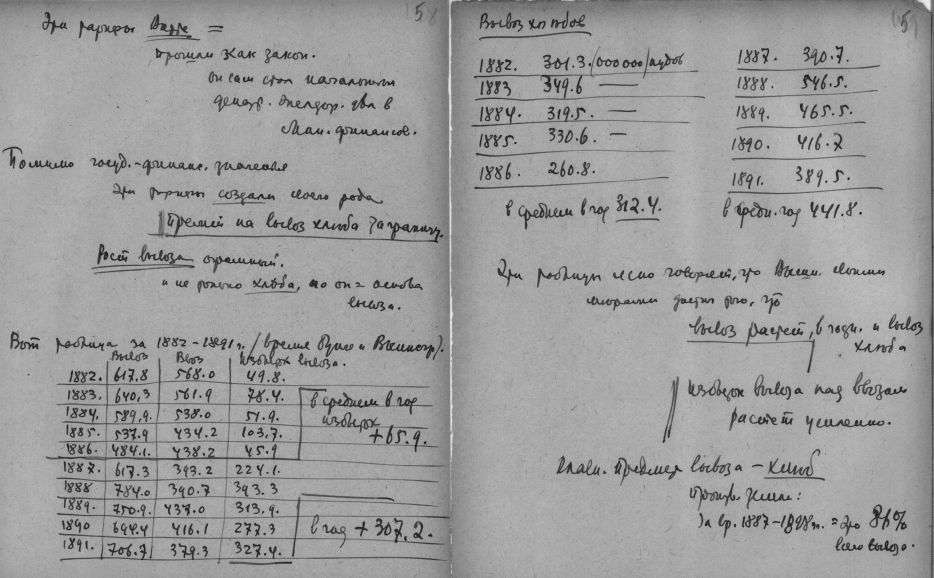 158
Эти тарифы Витте =
прошли как закон.
он сам стал начальником
департ. желдор. дел в
Мин. финансов.
Помимо госуд.-финанс. значенья
Эти тарифы создали своего рода
премии на вывоз хлеба за границу.
Рост вывоза огромный.
и не только хлеба, но он = основа
вывоза.
Вот таблица за 1882-1891 г. /время Бунге и Вышнегр/.
Вывоз Ввоз избыток вывоза.
1882. 617.8 568.0 49.8.
1883. 640.3 561.9 78.4.
1884. 589.9. 538.0 51.9.
1885. 537.9 434.2 103.7.
1886. 484.1. 438.2 45.9
в среднем в год
избыток
+65.9.
1887. 617.3 393.2 224.1.
1888 784.0 390.7 393.3
1889. 750.9. 437.0 313.9.
1890 694.4 416.1 277.3
1891. 706.7 379.3 327.4.
в год + 307.2.
159
Вывоз хлебов
1882. 301.3. (000000) пудов
1883 349.6 —
1884. 319.5. —
1885. 330.6. —
1886. 260.8.
в среднем в год 312.4.
1887. 390.7.
1888. 546.5.
1889. 465.5.
1890. 416.7
1891. 389.5.
в средн. год 441.8.
Эти таблицы ясно говорят, что Вышн. своими
мерами достиг того, что
вывоз растет, в годы. и вывоз
хлеба
избыток вывоза над ввозом
растет усиленно.
Главн. предмет вывоза – хлеб
За вр. 1887-1898 гг. = это 81%
всего вывоза.